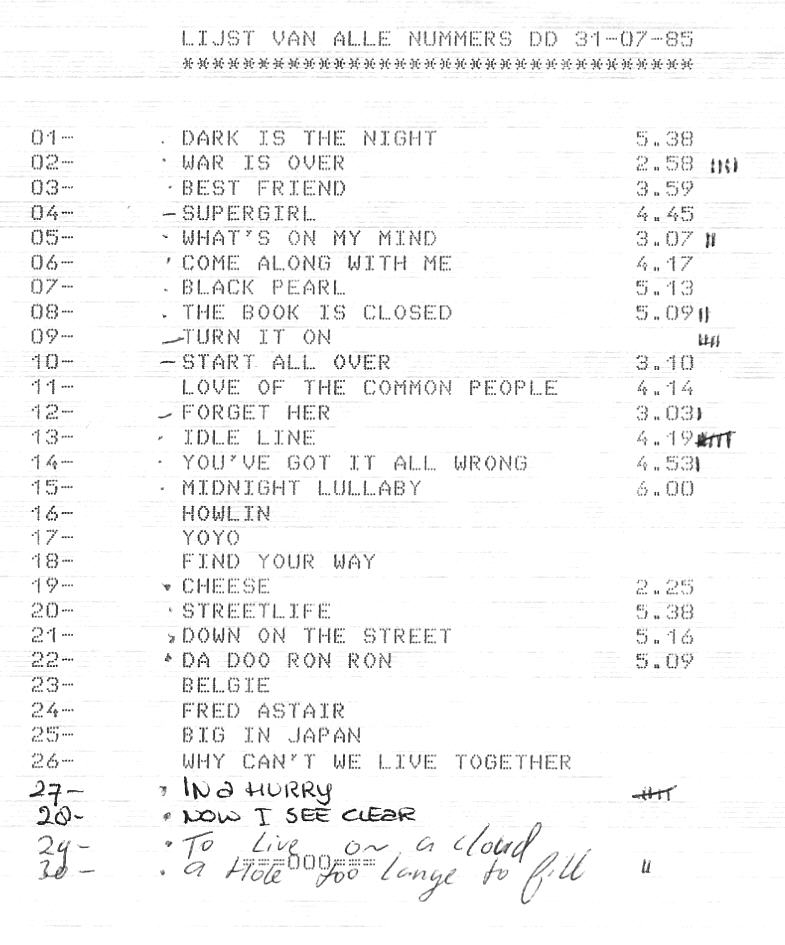 LIJST VAN ALLE NUMMERS DD 31-07-85
**********************************
01- . DARK IS THE NIGHT 5.38
02- . WAR IS OVER 2.58
03- . BEST FRIEND 3.59
04- - SUPERGIRL 4.45
05- - WHAT'S ON MY MIND 3.07
06- ' COME ALONG WITH ME 4.17
07- . BLACK PEARL 5.13
08- . THE BOOK IS CLOSED 5.09
09- - TURN IT ON
10- - START ALL OVER 3.10
11- LOVE OF THE COMMON PEOPLE 4.14
12- - FORGET HER 3.03
13- . IDLE LINE 4.19
14- . YOU'VE GOT IT ALL WRONG 4.53
15- . MIDNIGHT LULLABY 6.00
16- HOWLIN
17- YOYO
18- FIND YOUR WAY
19- . CHEESE 2.25
20- . STREETLIFE 5.38
21- . DOWN ON THE STREET 5.16
22- . DA DOO RON RON 5.09
23- BELGIE
24- FRED ASTAIR
25- BIG IN JAPAN
26- WHY CAN'T WE LIVE TOGETHER
27- . IN a HURRY
28- . NOW I SEE CLEAR
29- . To Live on a cloud
===000===
30- . a Hole too large to fill